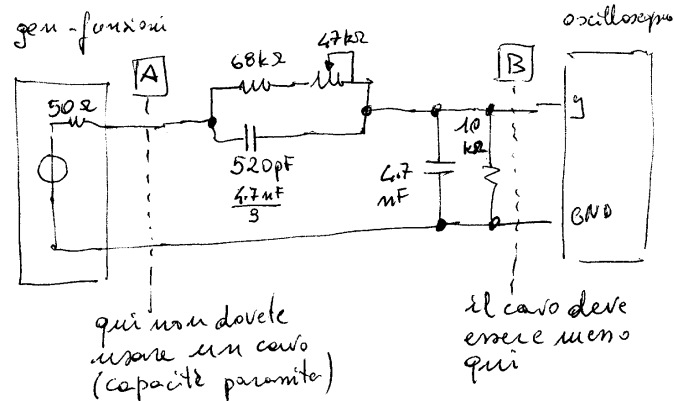 gen-funzioni
oscilloscopio
47kΩ
68kΩ
A
B
50Ω
y
10
kΩ
520pF
4.7nF
9
4.7
nF
GND
qui non dovete
usare un cavo
(capacità parassita)
il cavo deve
essere messo
qui